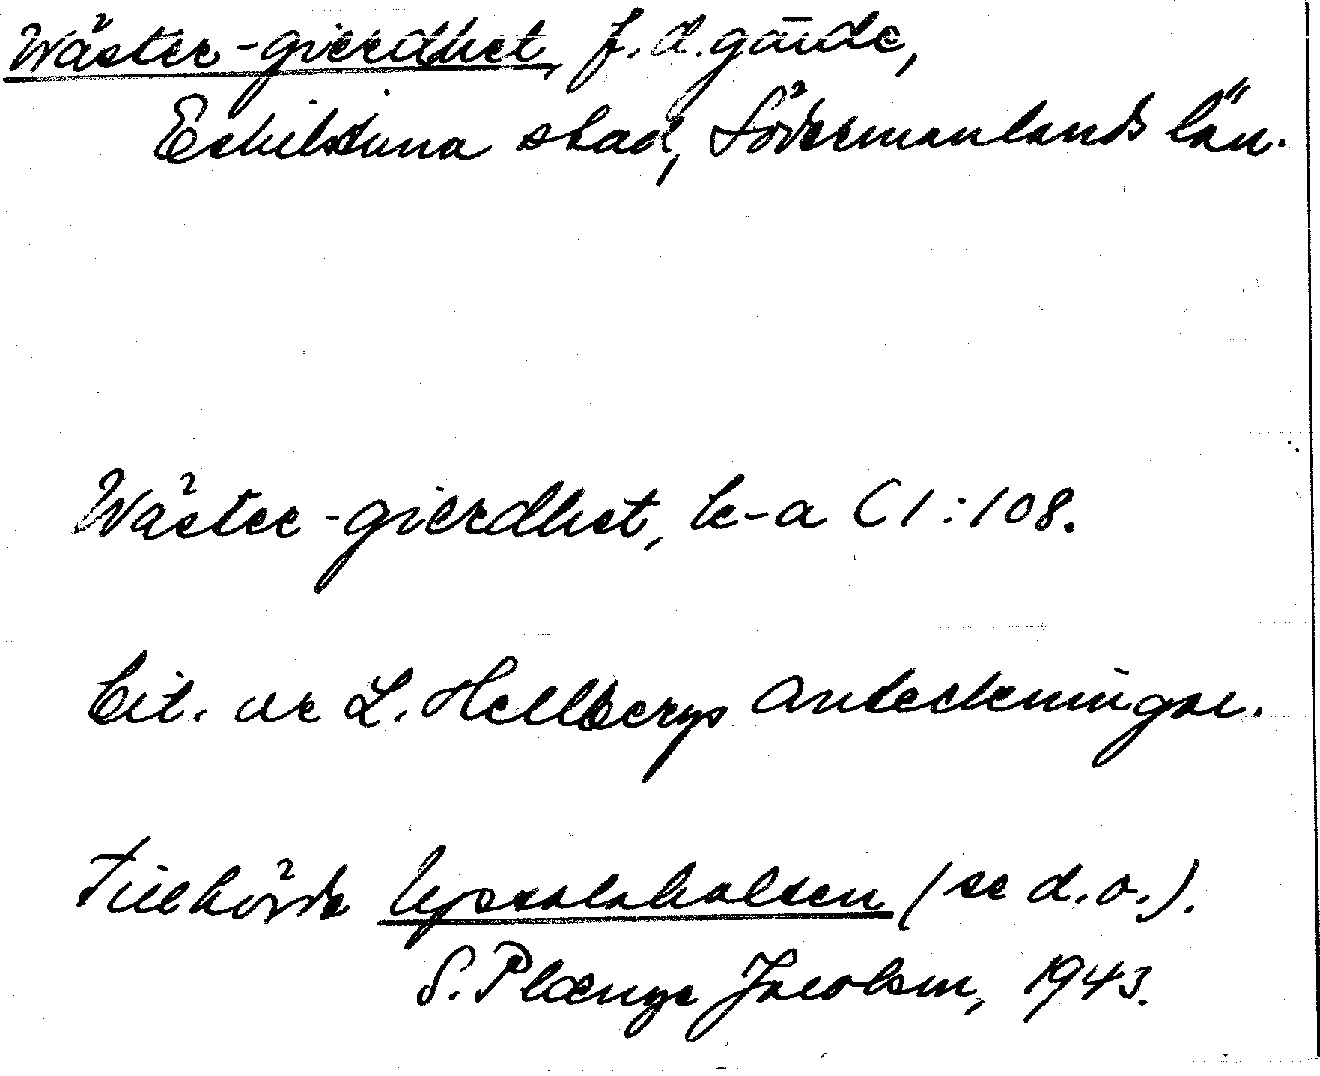 Wäster-gierdhet, f.d. gärde,
Eskilstuna stad, Södermanlands län.
Wäster-gierdhet, k-a C1:108.
Cit. ur L. Hellbergs anteckningar.
Tillhörde Upsalahalsen (se d.o.).
S. Plænge Jacobson, 1943.